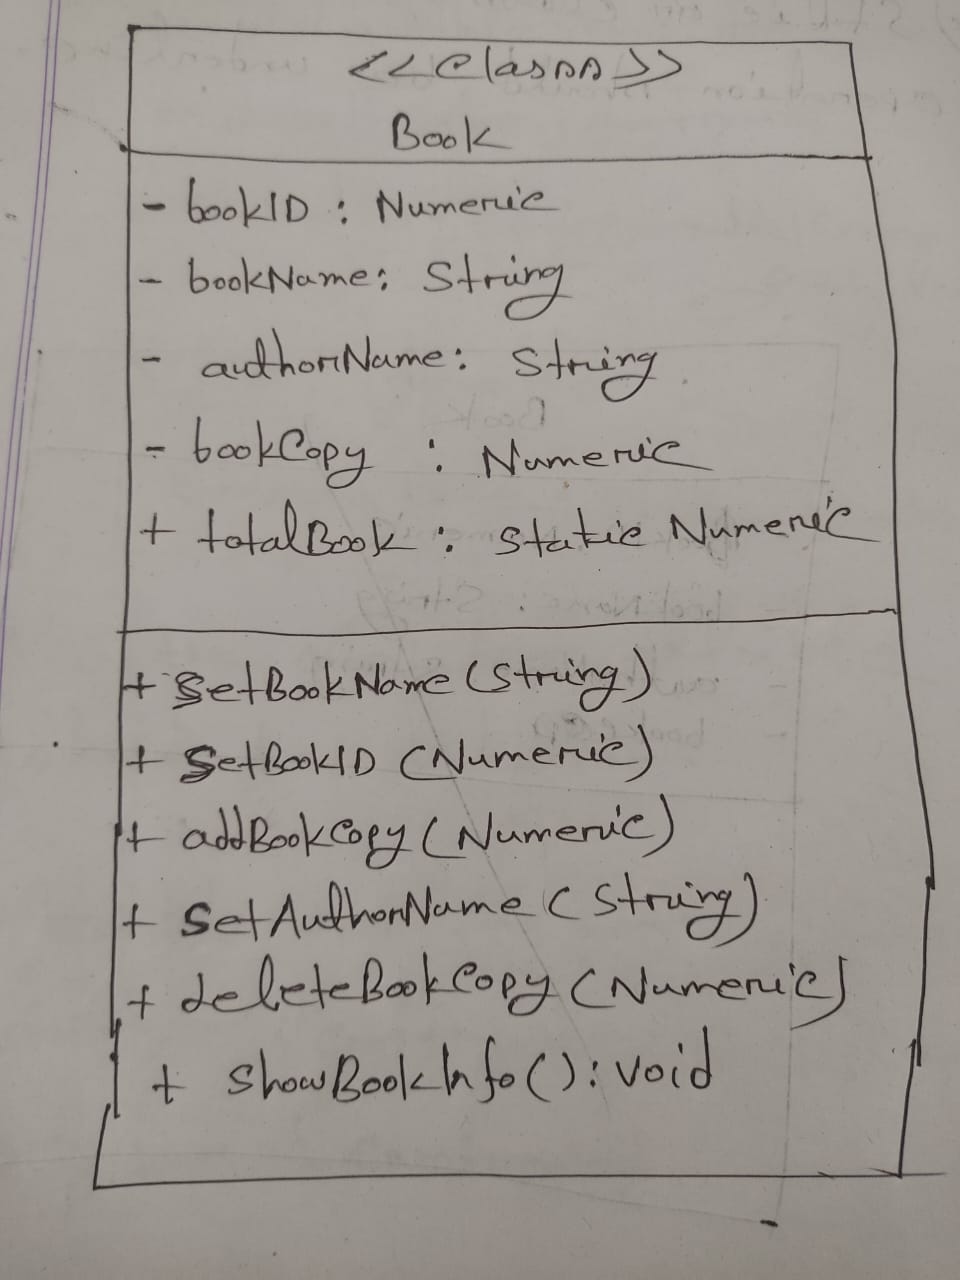 <<Class>>
Book
- bookID : Numeric
- bookName: String
- authorName: String
- bookCopy : Numeric
+ totalBook : static Numeric
+ SetBookName (String)
+ SetBookID (Numeric)
+ addBookCopy (Numeric)
+ SetAuthorName (String)
+ deleteBookCopy (Numeric)
+ ShowBookInfo(): void